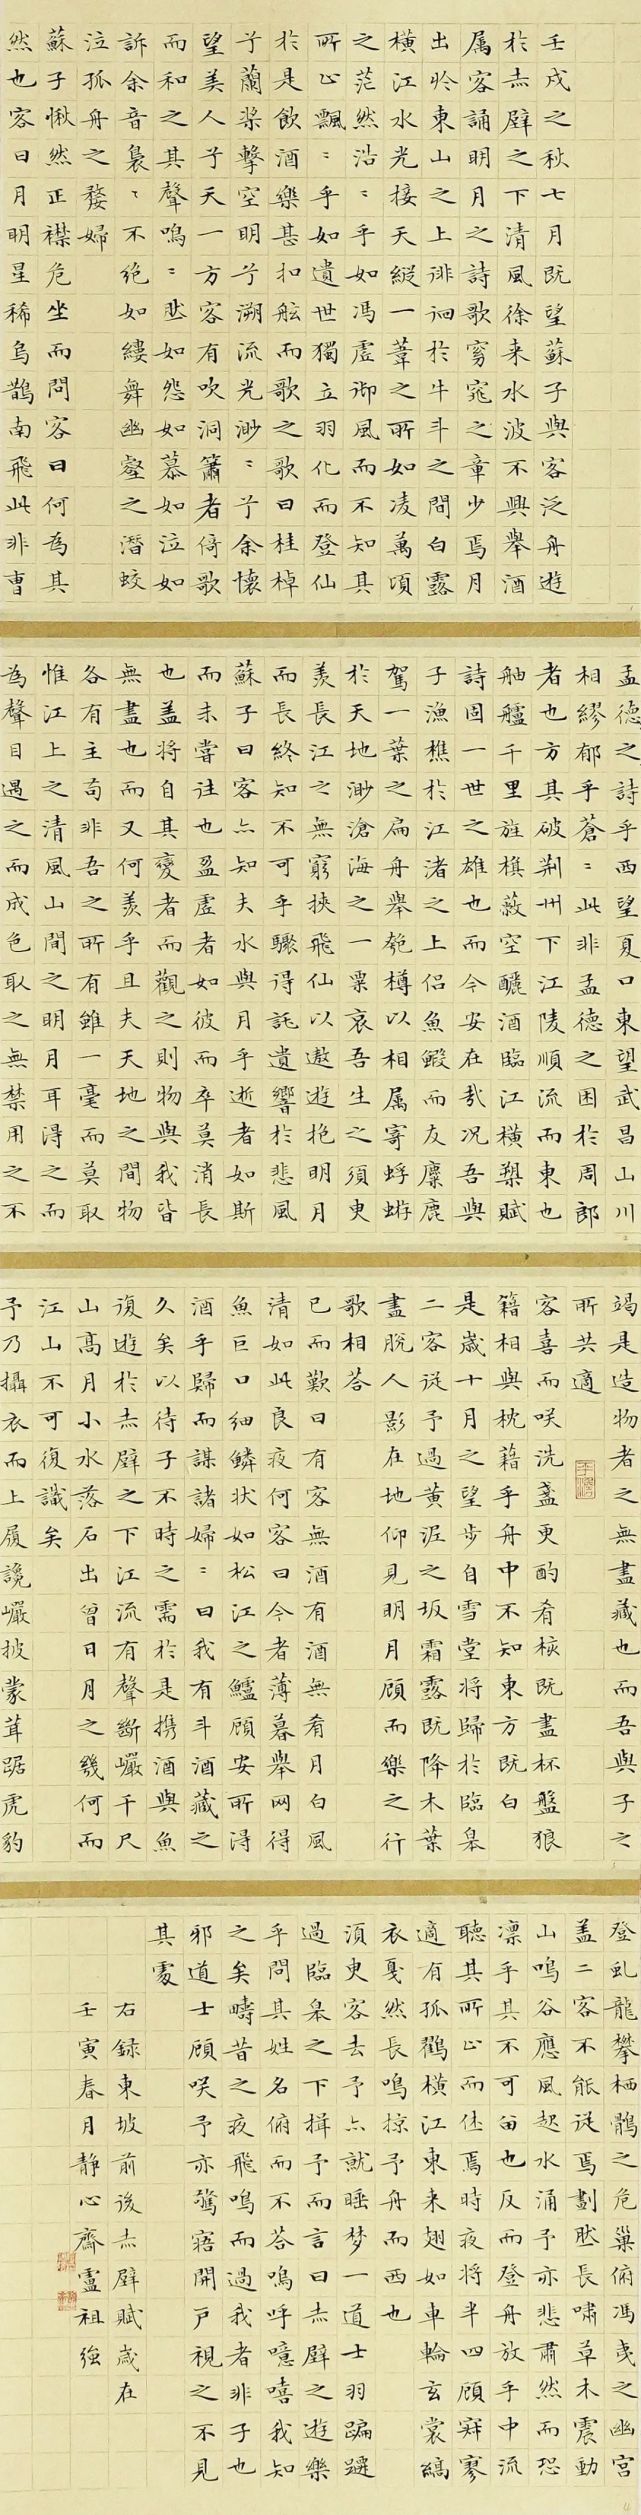 壬戌之秋七月既望蘇子與客泛舟遊
於赤壁之下清風徐来水波不興舉酒
属客誦明月之詩歌窈窕之章少焉月
出於東山之上徘徊於牛斗之間白露
橫江水光接天縱一葦之所如凌萬頃
之茫然浩〻乎如馮虛御風而不知其
所止飄〻乎如遺世獨立羽化而登仙
於是飲酒樂甚扣舷而歌之歌曰桂棹
兮蘭槳擊空明兮溯流光渺〻兮余懷
望美人兮天一方客有吹洞簫者倚歌
而和之其聲鳴〻然如怨如慕如泣如
訴余音裊〻不絶如縷舞幽壑之潛蛟
泣孤舟之嫠婦
蘇子愀然正襟危坐而問客曰何為其
然也客曰月明星稀烏鵲南飛此非曹
孟德之詩乎西望夏口東望武昌山川
相繆郁乎蒼〻此非孟德之困於周郎
者也方其破荆州下江陵順流而東也
舳艫千里旌旗蔽空釃酒臨江橫槊賦
詩固一世之雄也而今安在哉况吾與
子漁樵於江渚之上侣魚鰕而友麋鹿
駕一葉之扁舟舉匏樽以相属寄蜉蝣
於天地渺滄海之一粟哀吾生之須臾
羡長江之無窮挾飛仙以遨遊抱明月
而長終知不可乎驟得託遺響於悲風
蘇子曰客亦知夫水與月乎逝者如斯
而未嘗往也盈虛者如彼而卒莫消長
也盖將自其變者而觀之則物與我皆
無盡也而又何羡乎且夫天地之間物
各有主苟非吾之所有雖一毫而莫取
惟江上之清風山間之明月耳得之而
為聲目遇之而成色取之無禁用之不
竭是造物者之無盡藏也而吾與子之
所共適
客喜而咲洗盞更酌肴核既盡杯盤狼
籍相與枕藉乎舟中不知東方既白
是歲十月之望步自雪堂將歸於臨皋
二客従予過黄泥之坂霜露既降木葉
盡脫人影在地仰見明月顧而樂之行
歌相荅
已而歎曰有客無酒有酒無肴月白風
清如此良夜何客曰今者薄暮舉网得
魚巨口细鳞状如松江之鱸顧安所得
酒乎歸而謀諸婦〻曰我有斗酒藏之
久矣以待子不時之需於是携酒與魚
復遊於赤壁之下江流有聲斷巗千尺
山高月小水落石出曾日月之幾何而
江山不可復識矣
予乃攝衣而上履巉巗披蒙茸踞虎豹
登虬龍攀栖鶻之危巢俯馮夷之幽宫
盖二客不能従焉劃然長嘯草木震動
山鳴谷應風起水涌予亦悲肅然而恐
凛乎其不可留也反而登舟放乎中流
聽其所止而休焉時夜將半四顧寂寥
適有孤鶴橫江東来翅如車輪玄裳縞
衣戛然長鳴掠予舟而西也
須臾客去予亦就睡梦一道士羽蹁躚
過臨皋之下揖予而言曰赤壁之遊樂
乎問其姓名俯而不荅嗚呼噫嘻我知
之矣疇昔之夜飛鳴而過我者非子也
邪道士顧咲予亦驚寤開戶視之不見
其處
右録東坡前後赤壁賦歲在
壬寅春月静心齋盧祖強